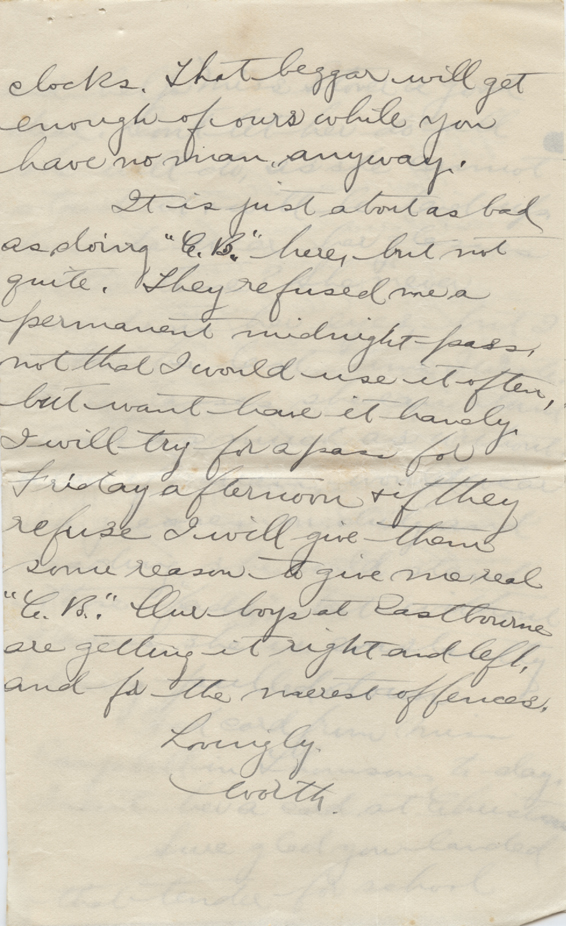 clocks. That beggar will get
enough of ours while you
have no man, anyway.
It is just about as bad
as doing "C.B." here, but not
quite. They refused me a
permanent midnight pass,
not that I would use it often,
but want have it handy.
I will try for a pass for
Friday afternoon & if they
refuse I will give them
some reason to give me real
"C.B." Our boys at Eastbourne
are getting it right and left,
and for the merest offences.
Lovingly.
Worth.